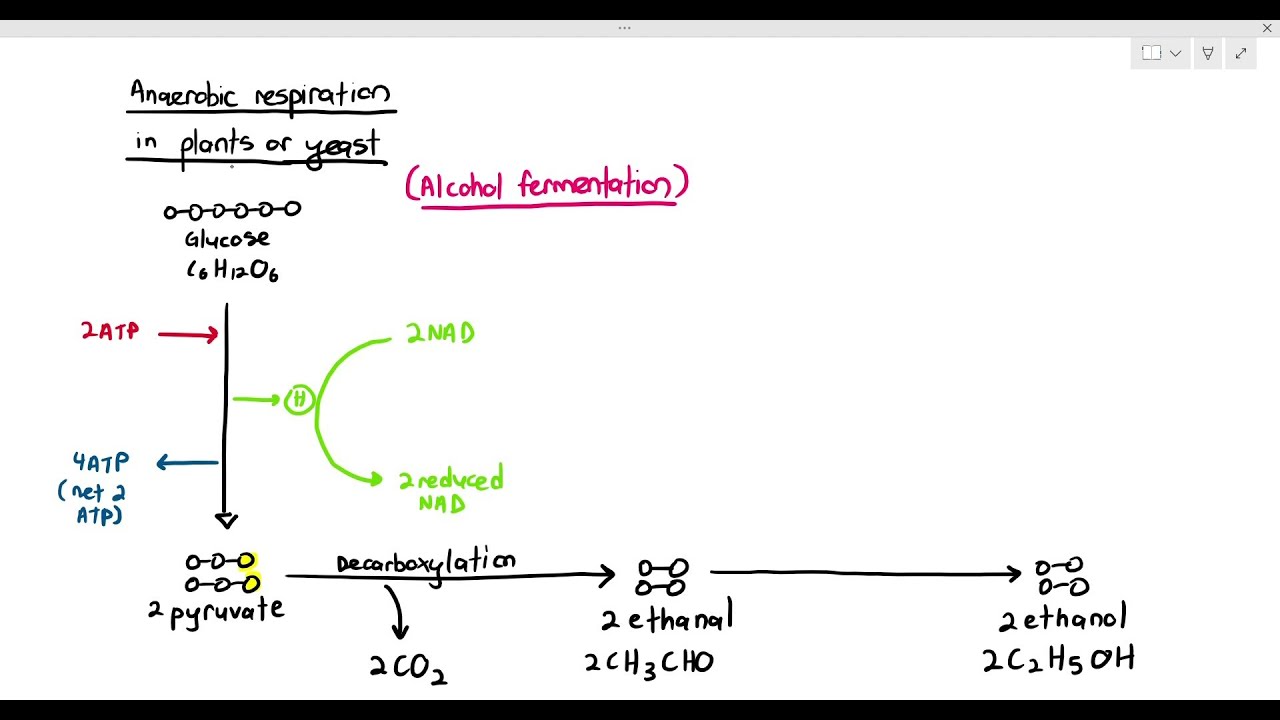 Anaerobic respiration
in plants or yeast
(Alcohol fermentation)
Glucose
C6H12O6
2ATP
2NAD
H
4ATP
(net 2
ATP)
2 reduced
NAD
Decarboxylation
2 pyruvate
2CO2
2 ethanal
2CH3CHO
2 ethanol
2C2H5OH